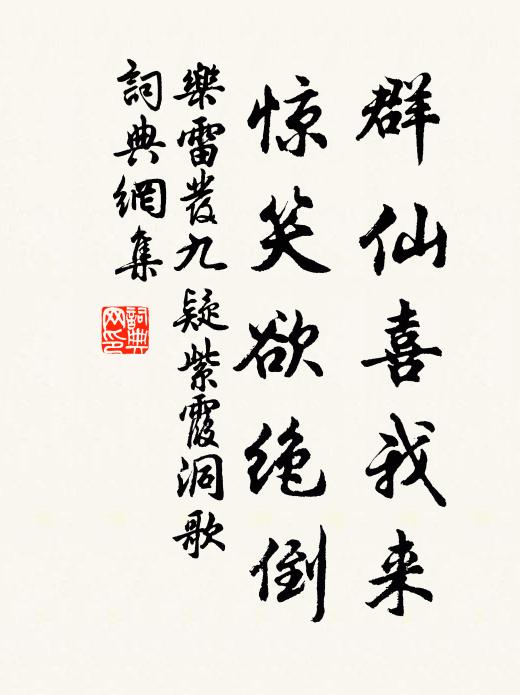 群仙喜我来
惊笑欲绝倒
樂雷發九疑紫霞洞歌
詞典網集
詞典网印